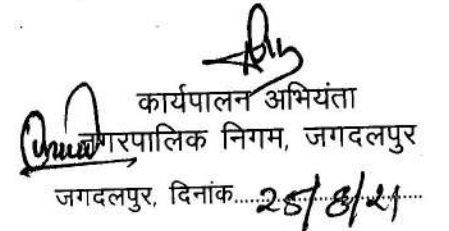 कार्यपालन अभियंता
नगरपालिक निगम, जगदलपुर
जगदलपुर, दिनांक....25/8/21....